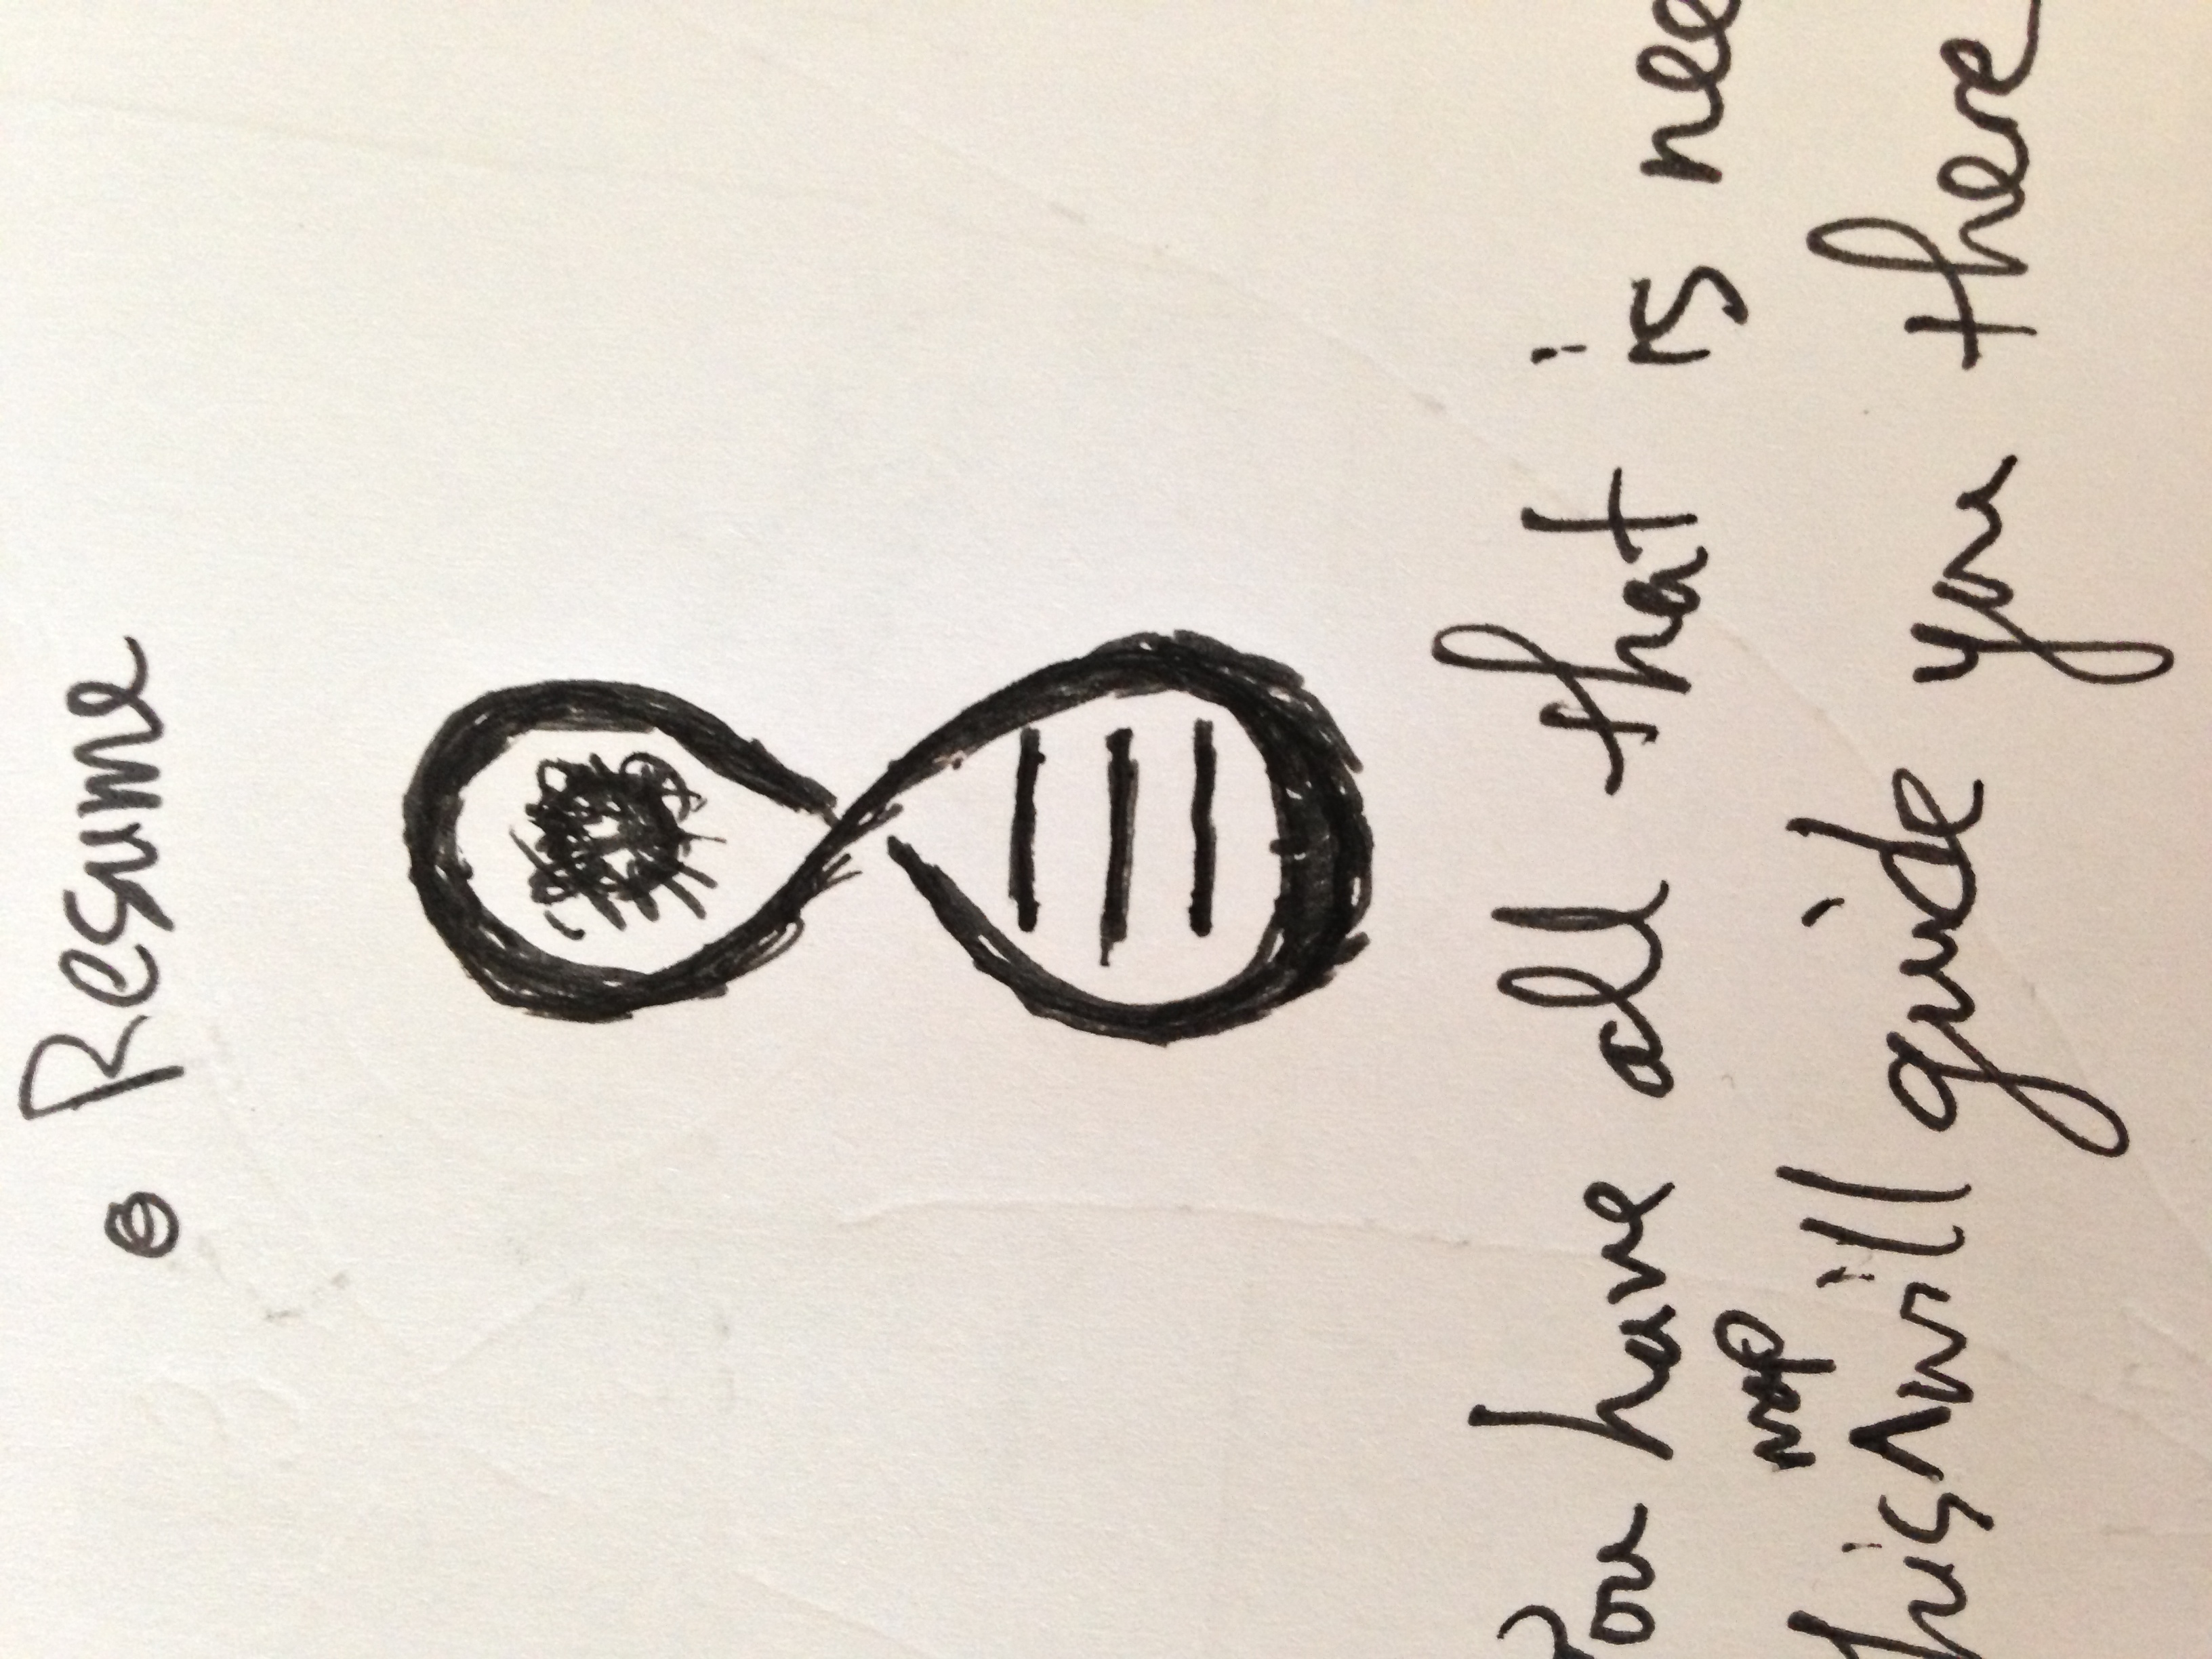 Resume
You have all that is nee
map
his ^ will guide you there